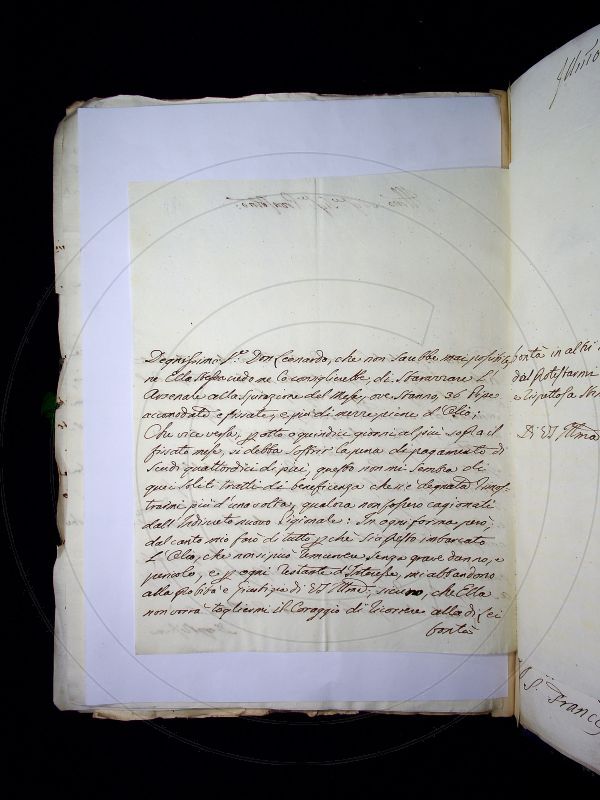 Degnissimo S.r Don Leonardo, che non sarebbe mai possibile
ne Ella stessa credo me lo consiglierebbe, di sbarazzare l'
Arsenale alla spirazione del Mese, ove stanno 36 Pipe
accomodate e fissate, e più di mezze piene d'Olio;
Che viceversa, p otto o quindici giorni al più sopra il
fissato mese, si debba soffrir la pena di pagamento di
Scudi quattordici di più, questo non mi sembra di
quei soliti tratti di beneficenza che si è degnata dimos-
trarmi più d'una volta, qualora non fossero cagionati
dall' Indiscreto nuovo Pigionale: In ogni forma, però,
dal canto mio farò di tutto p che sia presto imbarcato
l'Olio, che non si può rimuovere senza grave danno, e
pericolo, e p ogni restante d'Interesse, mi abbandono
alla probità e giustizia di VS Illma, sicuro, che Ella
non vorrà togliermi il Coraggio di ricorrere alla di Lei
bontà
bontà in altri
dal protestarmi
e rispetosa
Di VS Illma
S. Franc